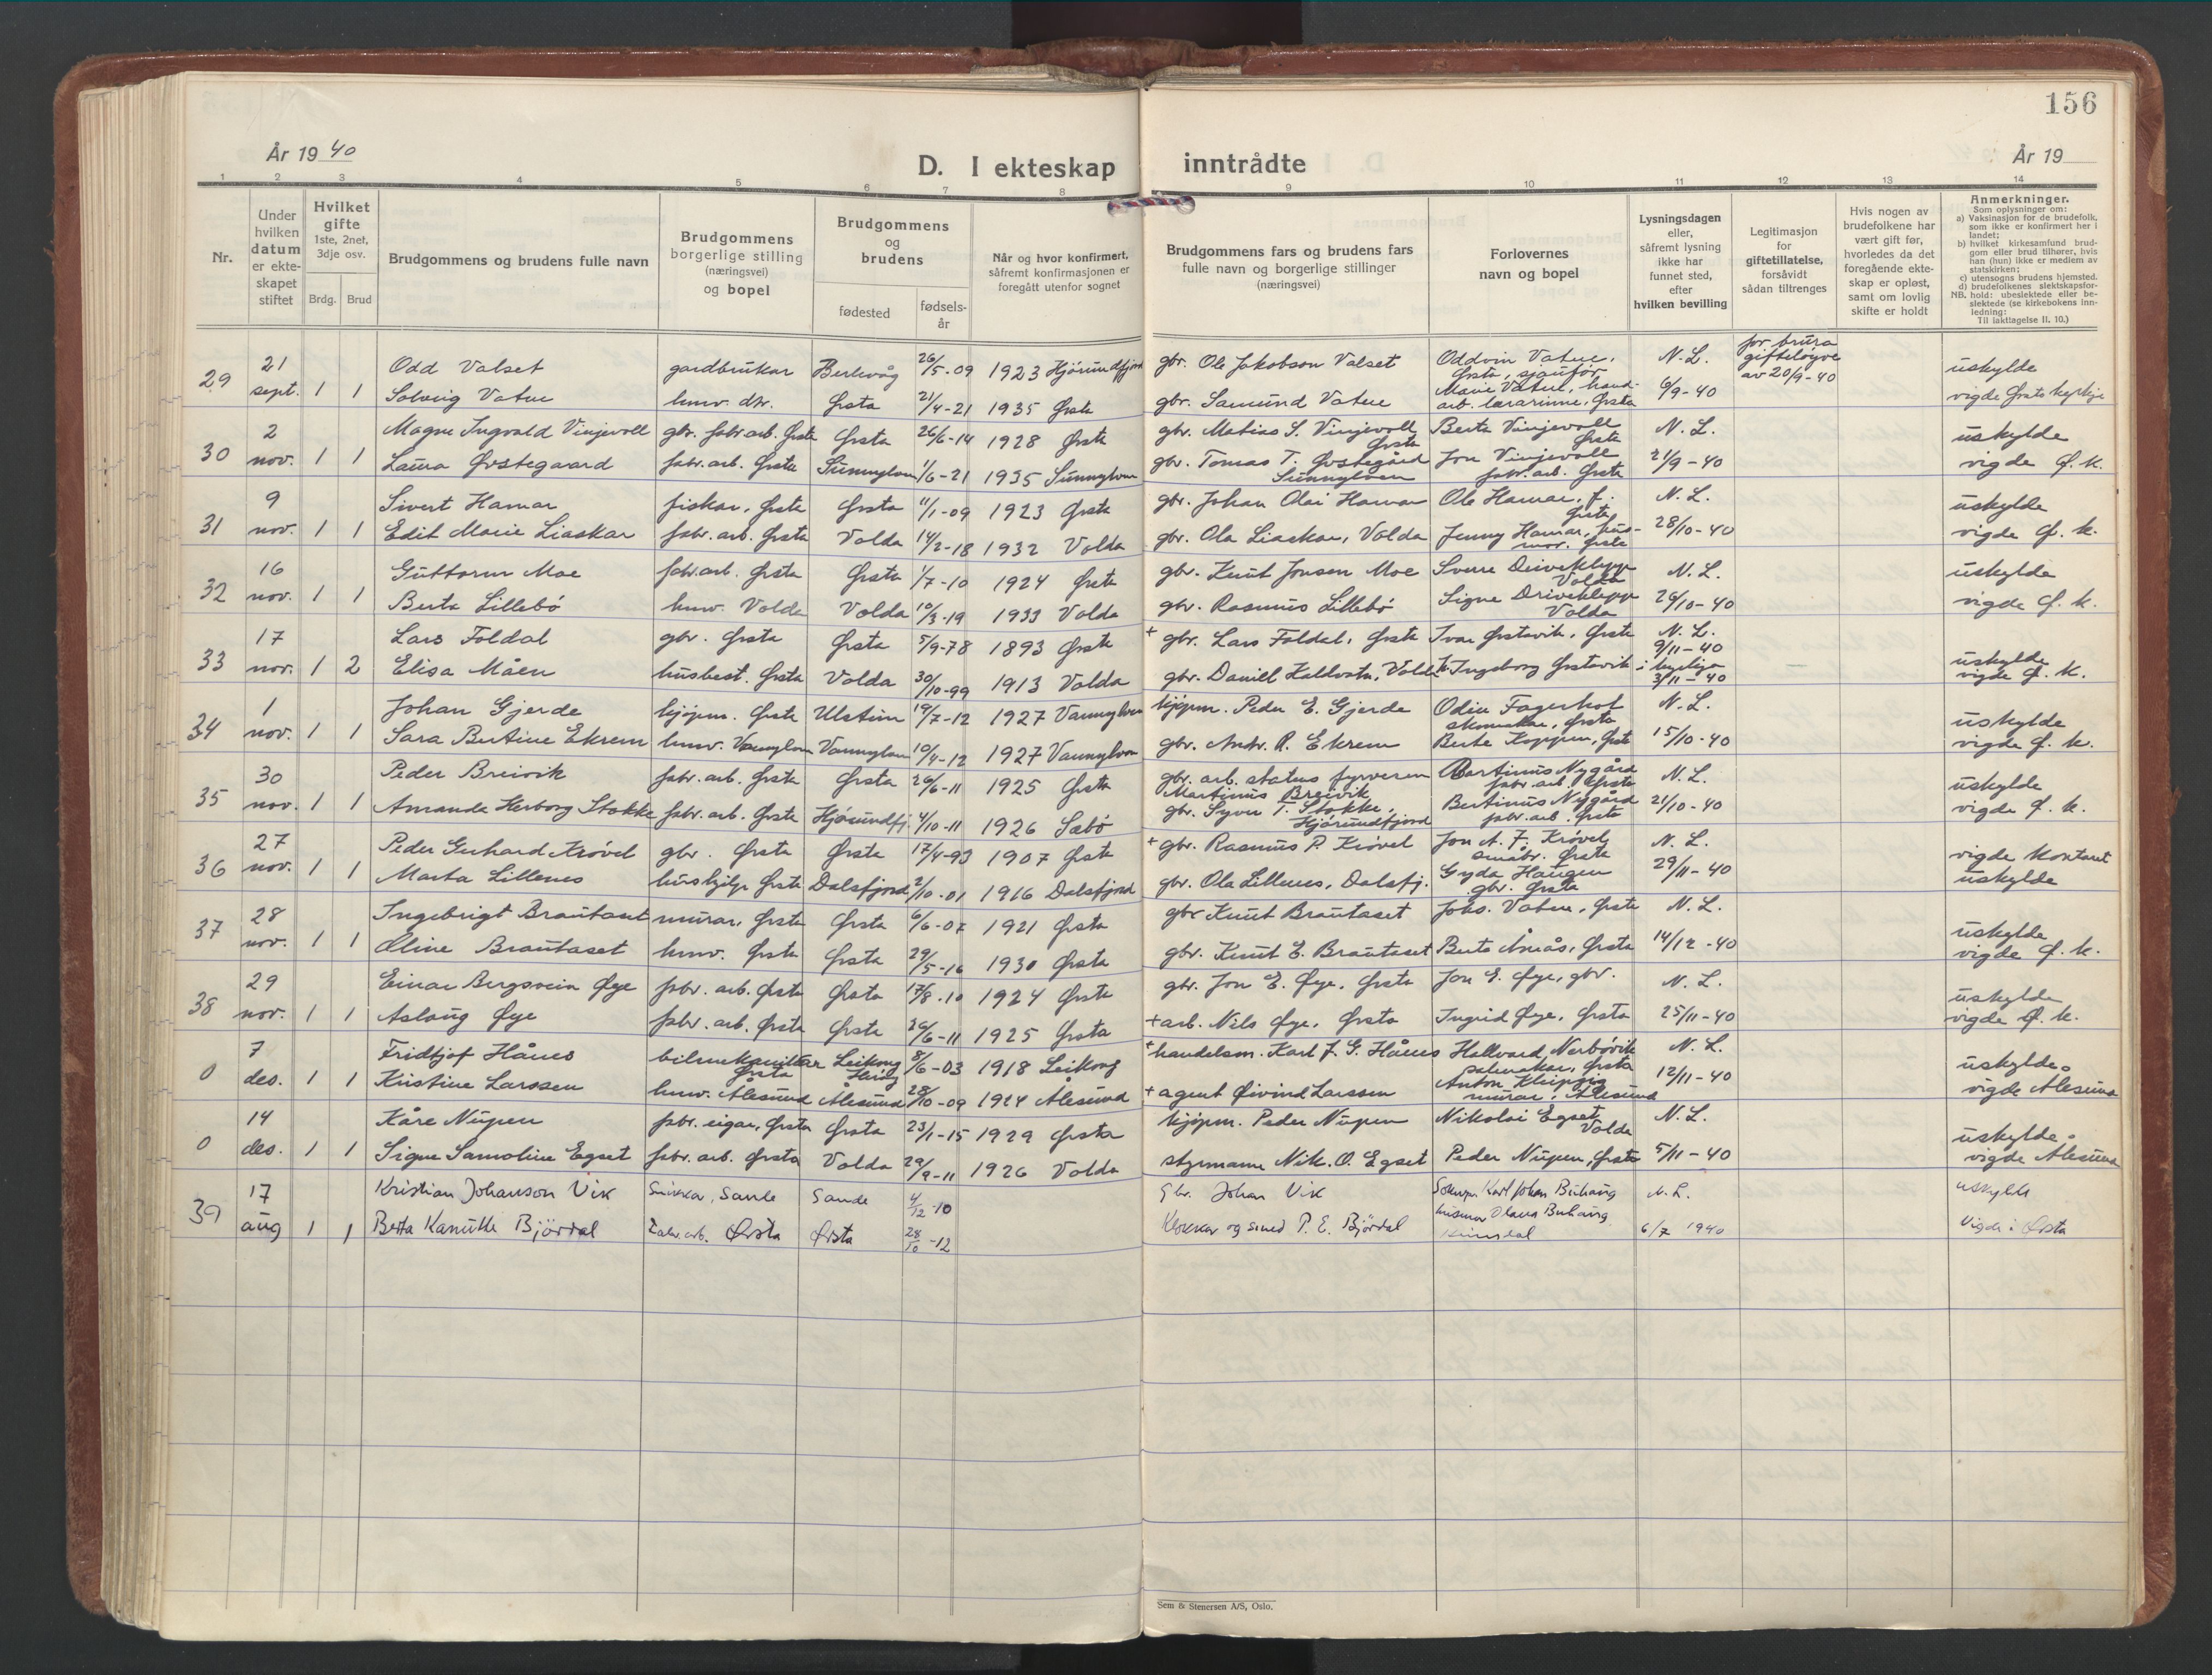 156
År 1940
D. I ekteskap inntrådte
År 19
1 2 3 4 5 6 7 8 9 10 11 12 13 14
Nr.
Under hvilken datum er ekteskapet stiftet
Hvilket gifte 1ste, 2net, 3dje osv.
Brdg. Brud
Brudgommens og brudens fulle navn
Brudgommens borgerlige stilling (næringsvei) og bopel
Brudgommens og brudens
fødested
fødselsår
Når og hvor konfirmert, såfremt konfirmasjonen er foregått utenfor sognet
Brudgommens fars og brudens fars fulle navn og borgerlige stillinger (næringsvei)
Forlovernes navn og bopel
Lysningsdagen eller, såfremt lysning ikke har funnet sted, efter hvilken bevilling
Legitimasjon for giftetillatelse, forsåvidt sådan tiltrenges
Hvis nogen av brudefolkene har vært gift før, hvorledes da det foregående ekteskap er opløst, samt om lovlig skifte er holdt
Anmerkninger.
Som oplysninger om:
a) Vaksinasjon for de brudefolk, som ikke er konfirmert her i landet;
b) hvilket kirkesamfund brudgom eller brud tilhører, hvis han (hun) ikke er medlem av statskirken;
c) utensogns brudens hjemsted.
d) brudefolkenes slektskapsforhold: ubeslektede eller beslektede (se kirkebokens innledning:
NB. Til iakttagelse II. 10.)
29 21 sept. 1 1 Odd Valset gardbrukar 26/5-09 1923 Hjørundfjord gbr. Ole Jakobson Valset Oddvin Vatne, Ørsta, sjåufør N.L. for brura gifteløyve av 20/9-40 uskylde
Solveig Vatne hmv. dtr. Ørsta 21/4-21 1935 Ørsta gbr. Samund Vatne Marie Vatne, hand-arb. lærarinne, Ørsta 6/9-40 vigde Ørsta kyrkje
30 2 nov. 1 1 Magne Ingvald Vinjevoll gbr. fabr.arb. Ørsta Ørsta 26/6-14 1928 Ørsta gbr. Matias S. Vinjevoll Ørsta Berta Vinjevoll Ørsta N.L. uskylde
Laura Øvstegaard fabr.arb. Ørsta Sunnylven 1/6-21 1935 Sunnylven gbr. Tomas T. Øvstegård Sunnylven Jon Vinjevoll fabr.arb. Ørsta 21/9-40 vigde Ø.k.
31 9 nov. 1 1 Sivert Hamar fiskar, Ørsta Ørsta 11/1-09 1923 Ørsta gbr. Johan Olai Hamar Ole Hamar, f. Ørsta N.L. uskylde
Edit Marie Liaskar fabr.arb. Ørsta Volda 14/2-18 1932 Volda gbr. Ola Liaskar, Volda Jenny Hamar, husmor. Ørsta 28/10-40 vigde Ø.k.
32 16 nov. 1 1 Guttorm Moe fabr.arb. Ørsta Ørsta 1/7-10 1924 Ørsta gbr. Knut Jonsen Moe Sverre Driveklepp Volda N.L. uskylde
Berta Lillebø hmv. Volda Volda 10/3-19 1933 Volda gbr. Rasmus Lillebø Signe Driveklepp Volda 26/10-40 vigde Ø.k.
33 17 nov. 1 2 Lars Foldal gbr. Ørsta Ørsta 5/9-78 1893 Ørsta + gbr. Lars Foldal, Ørsta Ivar Ørstavik, Ørsta N.L. 9/11-40 uskylde
Elisa Måen husbest. Ørsta Volda 30/10-99 1913 Volda gbr. Daniel Kaldvatn, Volda Ingeborg Ørstavik 3/11-40 vigde Ø.k.
34 1 nov. 1 1 Johan Gjerde kjøpm. Ørsta Ulstein 19/7-12 1927 Vannylven kjøpm. Peder E. Gjerde Odin Fagerhol skomakar, Ørsta N.L. uskylde
Sara Bertine Ekrem hmv. Vannylven Vannylven 10/4-12 1927 Vannylven gbr. Andr. R. Ekrem Berte Koppen, Ørsta 15/10-40 vigde Ø.k.
35 30 nov. 1 1 Peder Breivik fabr.arb. Ørsta Ørsta 26/6-11 1925 Ørsta gbr. arb. statens fyrvesen Martinus Breivik Bertinus Nygård fabr.arb. Ørsta N.L. uskylde
Amanda Herborg Stokke fabr.arb. Ørsta Hjørundfj. 4/10-11 1926 Sæbø gbr. Syver T. Stokke, Hjørundfjord Bertinus Nygård fabr.arb. Ørsta 21/10-40 vigde Ø.k.
36 27 nov. 1 1 Peder Gerhard Krøvel gbr. Ørsta Ørsta 17/4-93 1907 Ørsta + gbr. Rasmus P. Krøvel Jon A. F. Krøvel småbr. Ørsta N.L. vigde kontoret
Marta Lillenes hushjelp Ørsta Dalsfjord 2/10-01 1916 Dalsfjord gbr. Ola Lillenes, Dalsfj. Gyda Haugen gbr. Ørsta 29/11-40 uskylde
37 28 nov. 1 1 Ingebrigt Brautaset murar, Ørsta Ørsta 6/6-07 1921 Ørsta gbr. Knut Brautaset Johs. Vatne, Ørsta N.L. uskylde
Oline Brautaset hmv. Ørsta Ørsta 29/5-16 1930 Ørsta gbr. Knut E. Brautaset Berta Åmås, Ørsta 14/12-40 vigde Ø.k.
38 29 nov. 1 1 Einar Bergsvein Øye fabr.arb. Ørsta Ørsta 17/8-10 1924 Ørsta gbr. Jon E. Øye, Ørsta Jon E. Øye, gbr. N.L. uskylde
Aslaug Øye fabr.arb. Ørsta Ørsta 26/6-11 1925 Ørsta + arb. Nils Øye, Ørsta Ingrid Øye, Ørsta 25/11-40 vigde Ø.k.
0 7 des. 1 1 Fridtjof Hånes bilmekanikar Ørsta Leikong Herøy 8/6-03 1918 Leikong + handelsm. Karl J. G. Hånes Hallvard Nerbøvik Ørsta N.L. uskylde
Kristine Larssen hmv. Ålesund Ålesund 28/10-09 1924 Ålesund + agent Øivind Larssen Anton murar, Ålesund 12/11-40 vigde Ålesund
0 14 des. 1 1 Kåre Nupen fabr. eigar, Ørsta Ørsta 23/1-15 1929 Ørsta kjøpm. Peder Nupen Nikolai Egset Volda N.L. uskylde
Signe Samoline Egset fabr.arb. Ørsta Volda 29/9-11 1926 Volda styrmann Nik. O. Egset Peder Nupen, Ørsta 5/11-40 vigde Ålesund
39 17 aug 1 1 Kristian Johanson Vik Snikkar, Sande Sande 4/12-10 Gbr. Johan Vik Karl Johan Buhaug N.L. uskylde
Berta Kanutte Bjørdal Fabr.arb. Ørsta Ørsta 28/10-12 Klokkar og smed P. E. Bjørdal husmor Olava Buhaug 6/7 1940 Vigde i Ørsta
Sem & Stenersen A/S, Oslo.